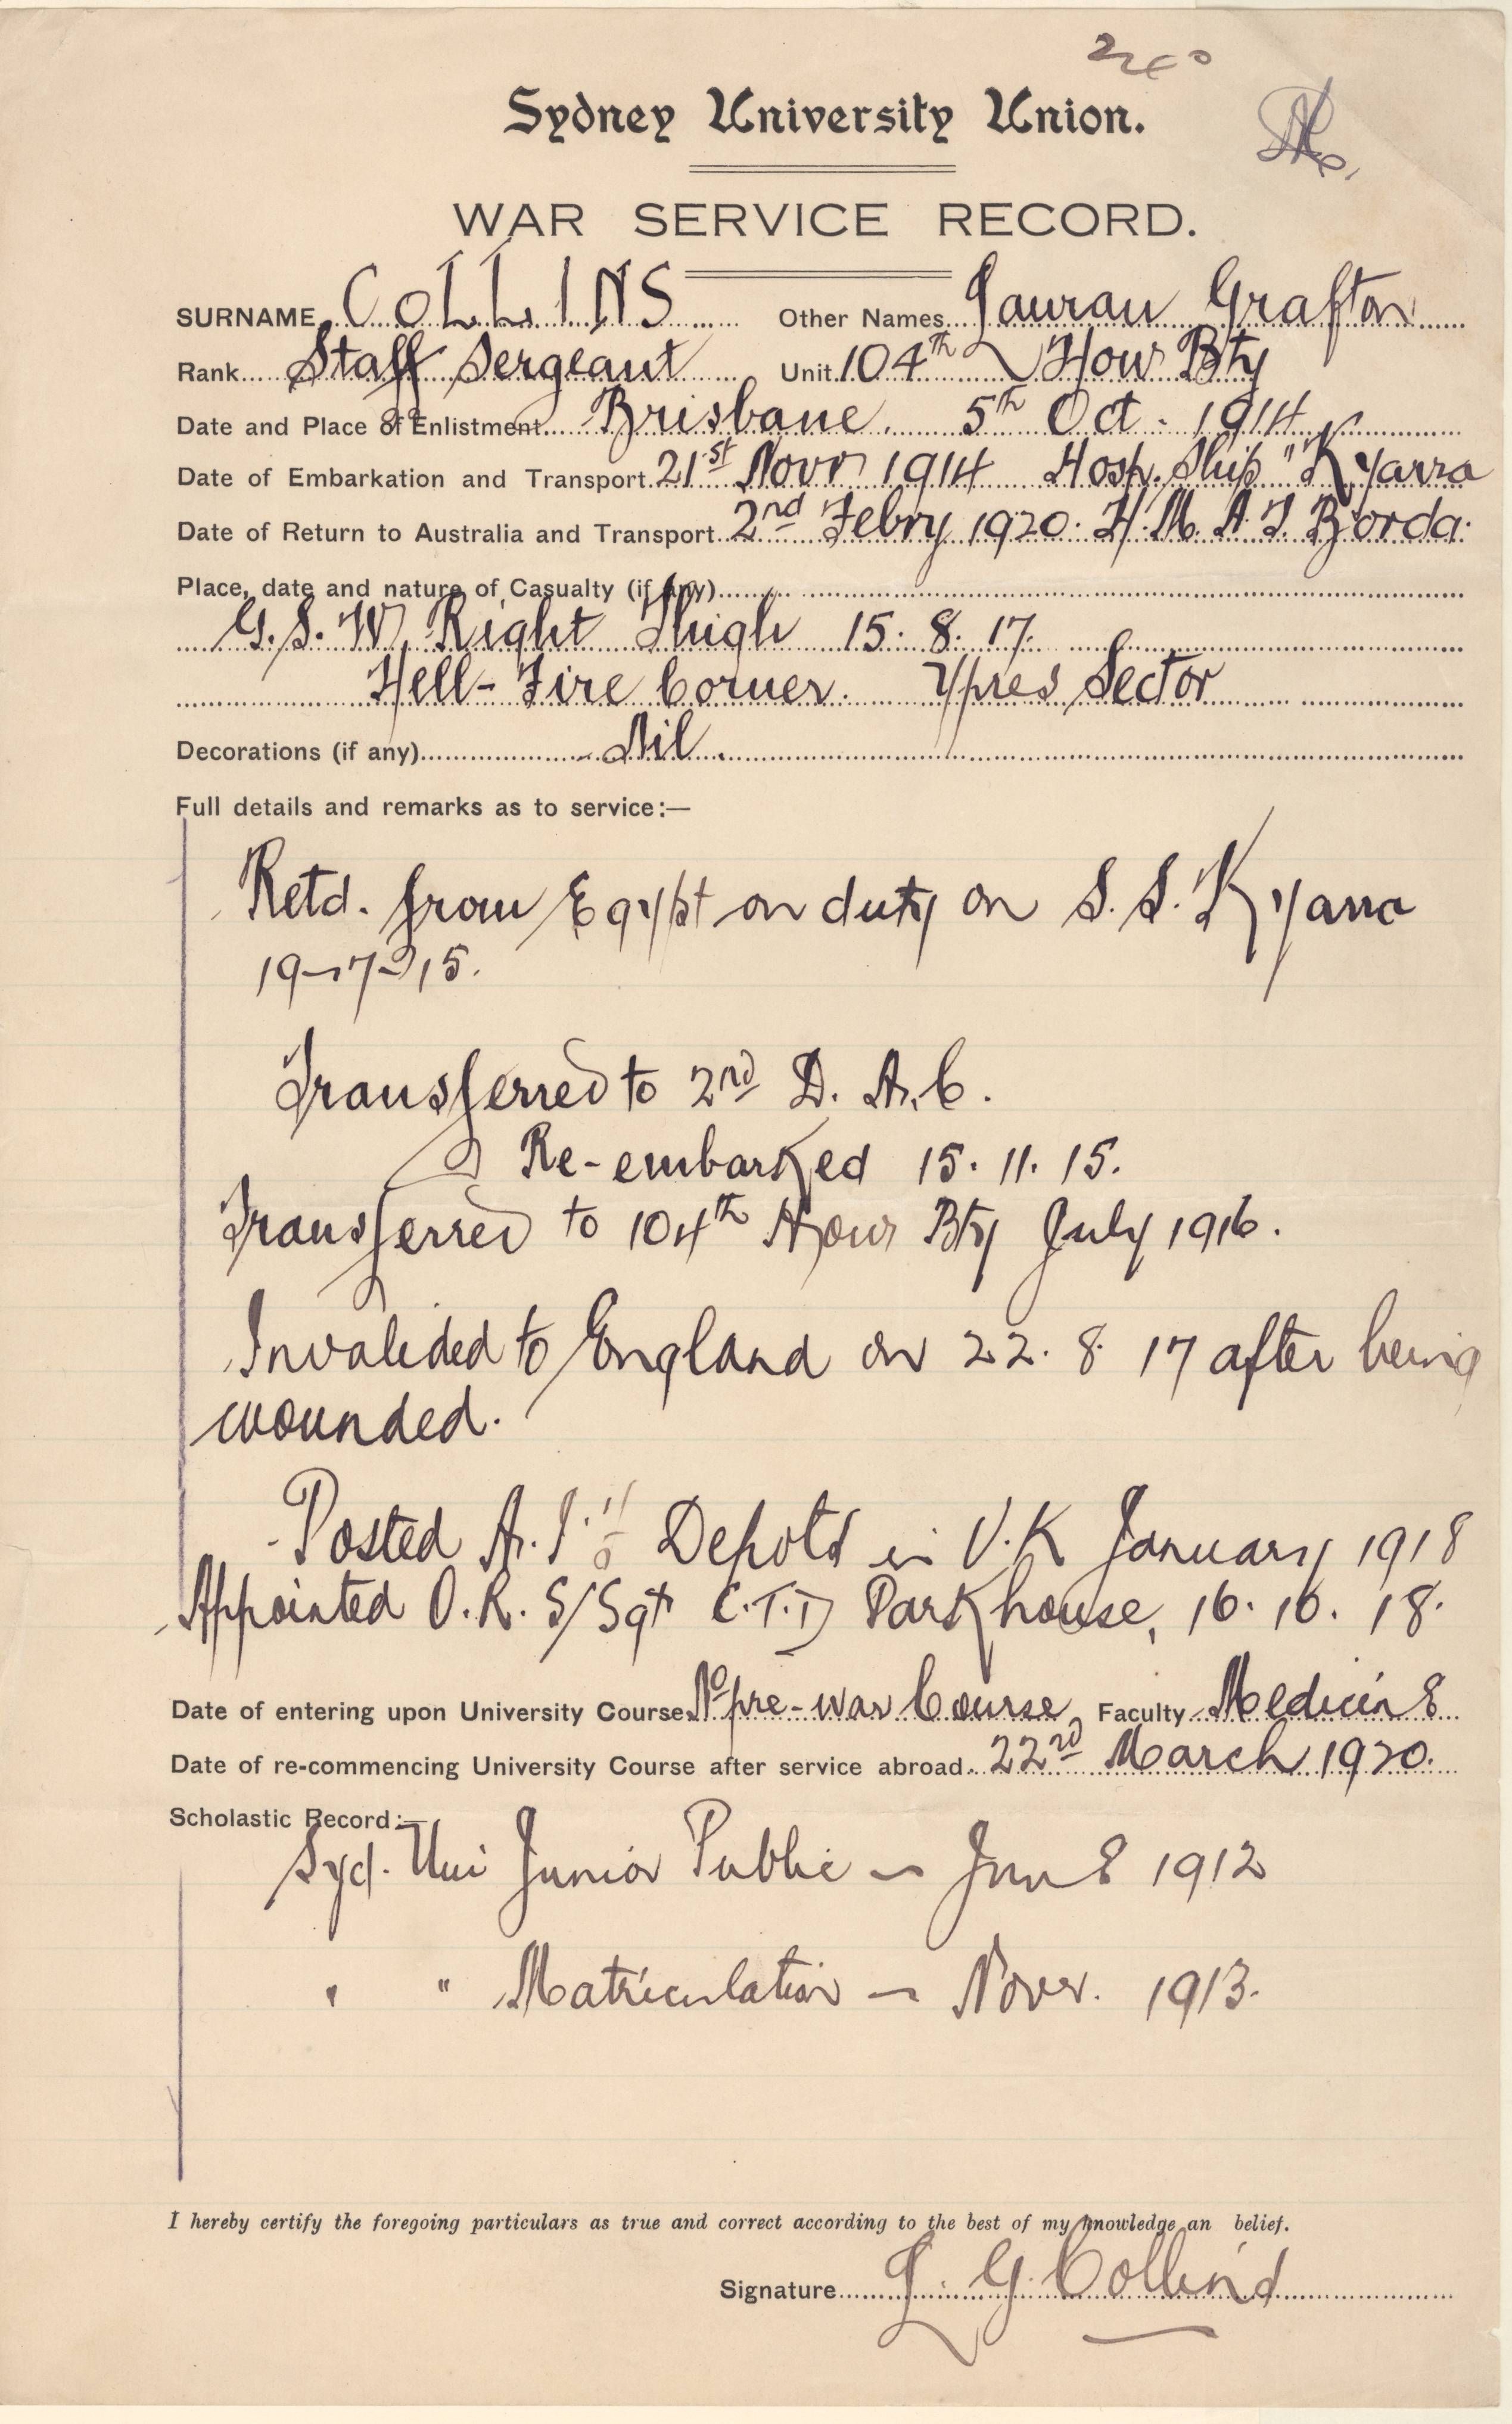 Sydney University Union.
WAR SERVICE RECORD.
SURNAME COLLINS Other Names Lauran Grafton
Rank Staff Sergeant Unit 104th How Bty
Date and Place of Enlistment Brisbane. 5th Oct. 1914
Date of Embarkation and Transport 21st Novr 1914 Hosp. Ship "Kyarra
Date of Return to Australia and Transport 2nd Febry 1920. H.M.A.T. Borda.
Place, date and nature of Casualty (if any)
G.S.W. Right Thigh 15.8.17.
Hell-Fire Corner. Ypres Sector
Decorations (if any) Nil.
Full details and remarks as to service:—
Retd. from Egypt on duty on S.S. Kyarra
19-7-15.
Transferred to 2nd D.A.C.
Re-embarked 15.11.15.
Transferred to 104th How Bty July 1916.
Invalided to England on 22.8.17 after being
wounded.
Posted Depots in U.K January 1918
Appointed O.R. S/Sgt C.T.D Parkhouse, 16.10.18.
Date of entering upon University Course No pre-war Course Faculty Medicine
Date of re-commencing University Course after service abroad 22nd March 1920.
Scholastic Record:—
Syd. Uni Junior Public - June 1912
" " Matriculation - Novr. 1913.
I hereby certify the foregoing particulars as true and correct according to the best of my knowledge an belief.
Signature L. G. Collins